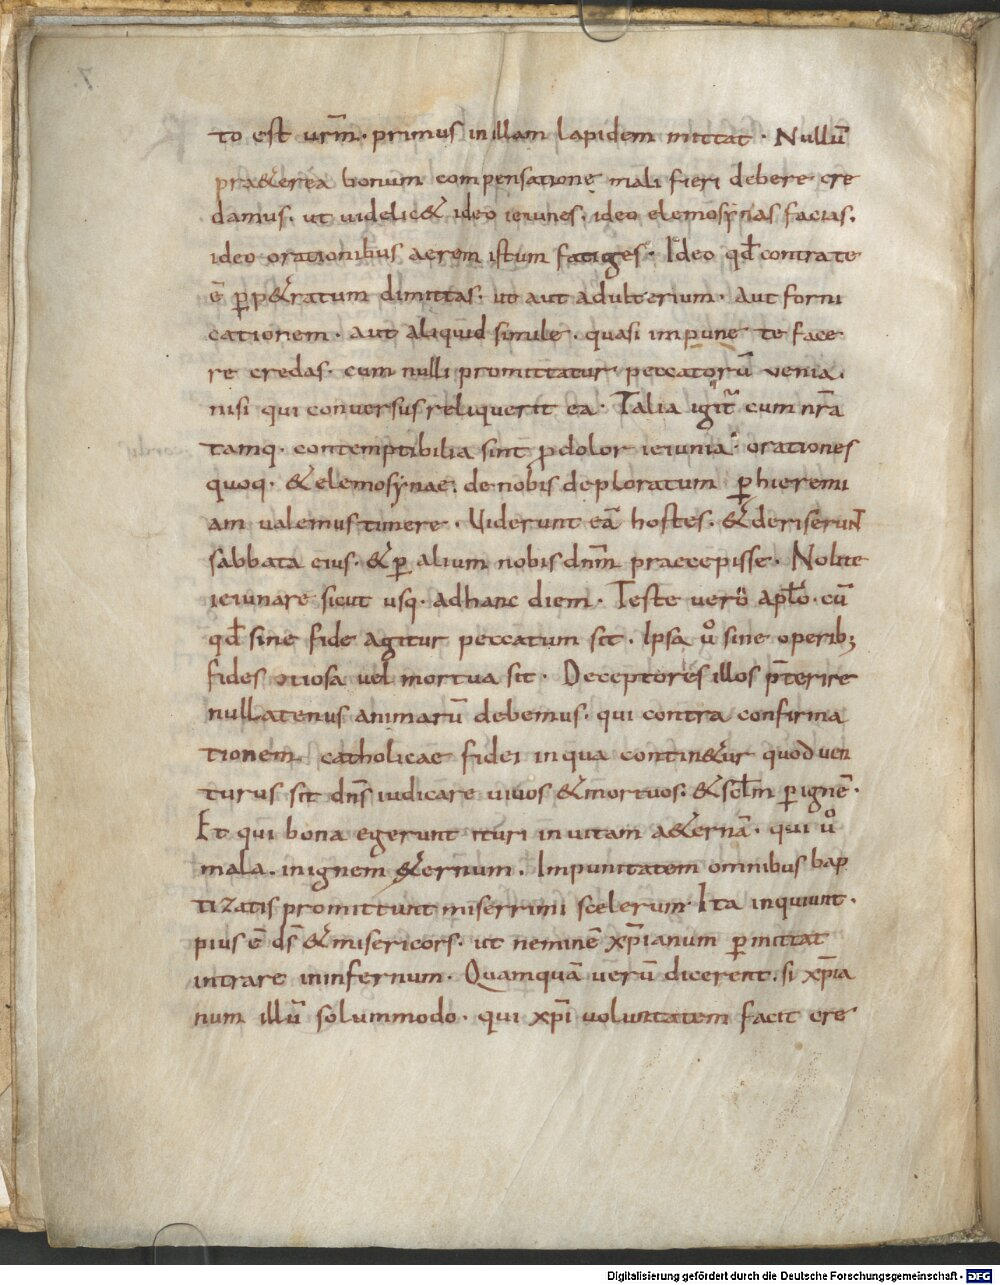 to est urm̄. primus in illam lapidem mittat. Nullū
pra&erea bonum compensatione mali fieri debere cre
damus. ut uidelic& ideo ieiunes. ideo elemosynas facias.
ideo orationibus aerem istum fatiges. Ideo qd̄ contra te
ē ꝑp&ratum dimittas. ut aut adulterium. Aut forni
cationem. aut aliquid simile. quasi impune te face
re credas. cum nulli promittatur peccatorū venia.
nisi qui conversus reliquerit ea. Talia igit̄ cum nr̄a
tamq. contemptibilia sint ꝓdolor ieiunia. orationes
quoq. & elemosynae. de nobis deploratum ꝑ hieremi
am ualemus timere. Uiderunt eā hostes. & deriserunt
sabbata eius. & ꝑ alium nobis dnm̄ praecepisse. Nolite
ieiunare sicut usq. ad hanc diem. Teste vero apl̄o. cū
qd̄ sine fide agitur peccatum sit. Ipsa uͦ sine operib;
fides otiosa uel mortua sit. Deceptores illos p̄terire
nullatenus animarū debemus. qui contra confirma
tionem catholicae fidei in qua contin&ur quod uen
turus sit dn̄s iudicare uiuos & mortuos. & scl̄m ꝑ ignē.
Et qui bona egerunt ituri in uitam a&ernā. qui uͦ
mala. in ignem &ernum. Impunitatem omnibus bap
tizatis promittunt miserrimi scelerum. Ita inquiunt.
pius ē ds̄ & misericors. ut neminē xp̄ianum ꝑmittat
intrare in infernum. Quamquā uerū dicerent. si xp̄ia
num illū solummodo. qui xp̄i voluntatem facit cre
Digitalisierung gefördert durch die Deutsche Forschungsgemeinschaft - DFG